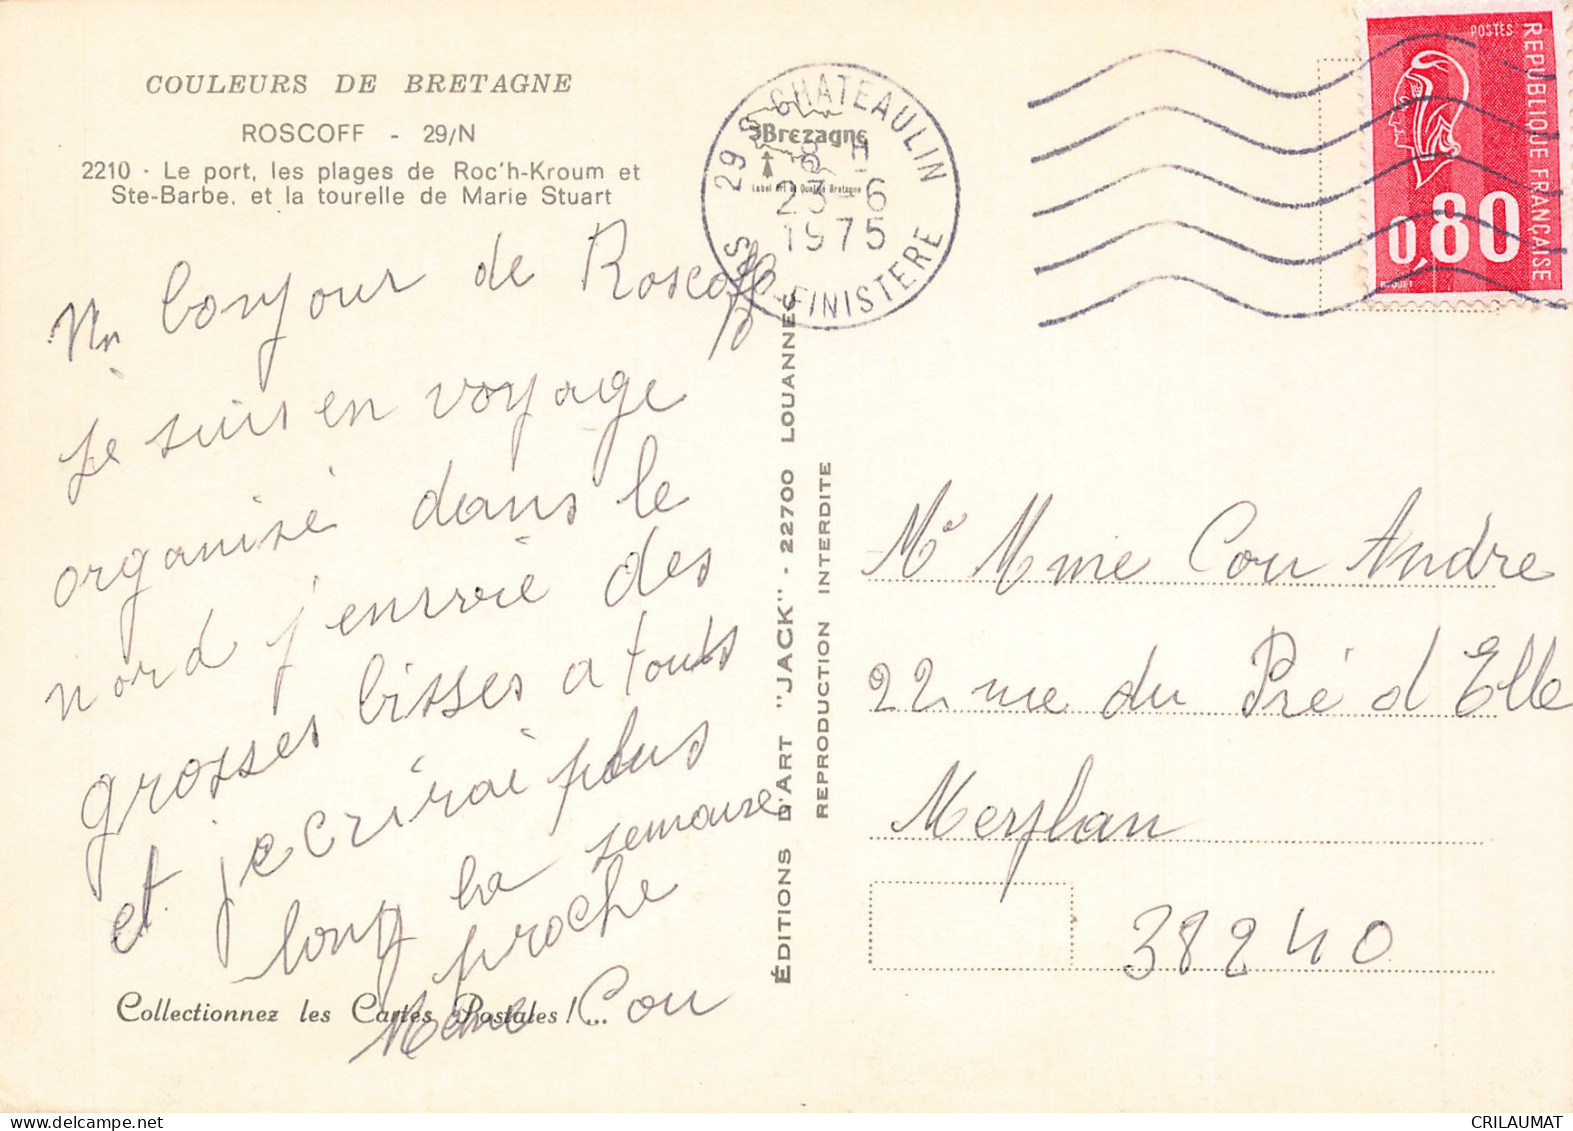 COULEURS DE BRETAGNE
ROSCOFF - 29/N
2210 - Le port, les plages de Roc'h-Kroum et
Ste-Barbe, et la tourelle de Marie Stuart
Un bonjour de Roscoff
je suis en voyage
organisé dans le
nord j'envoie des
grosses bisses a touts
et j ecrirai plus
long la semaine
proche
Meme Cou
Collectionnez les Cartes Postales !...
ÉDITIONS D'ART "JACK" - 22700 LOUANNEC
REPRODUCTION INTERDITE
29 S CHATEAULIN
8 H
23-6
1975
S FINISTERE
Bretagne
Label Art et Qualité Bretagne
POSTES
REPUBLIQUE FRANÇAISE
0,80
BEQUET
Mr Mme Cou Andre
22 rue du Pré d Elle
Meylan
38240
CRILAUMAT